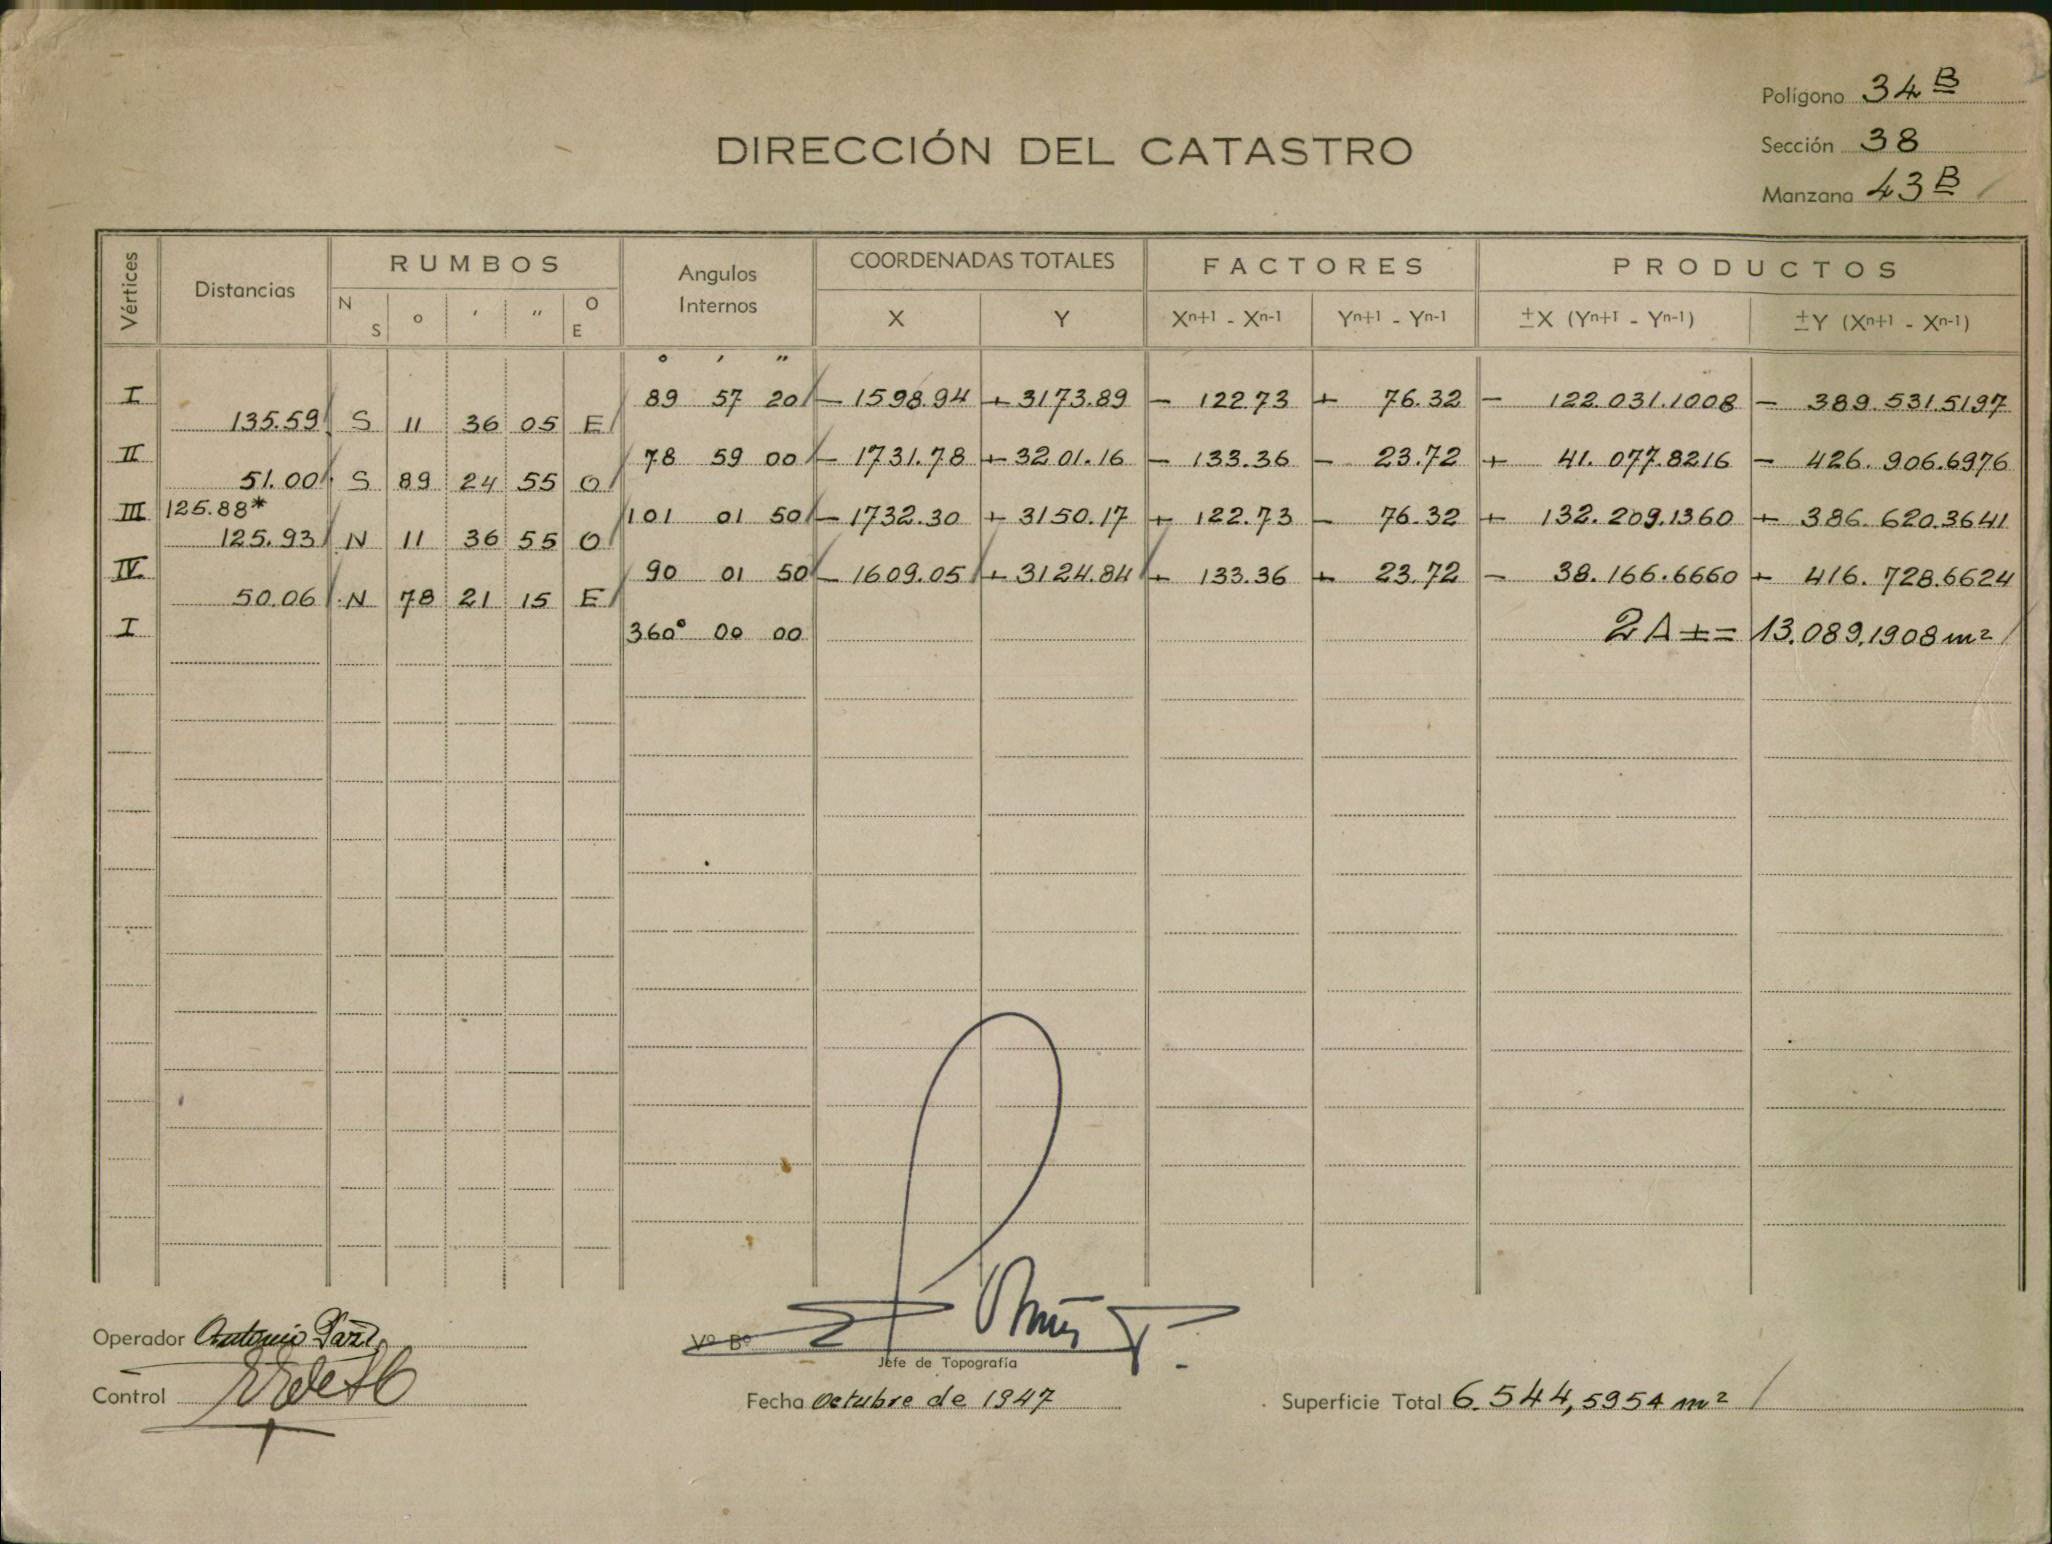 Polígono 34 B
DIRECCIÓN DEL CATASTRO
Sección 38
Manzana 43 B
Vértices Distancias RUMBOS Angulos Internos COORDENADAS TOTALES FACTORES PRODUCTOS
N S ° ′ ″ O E X Y Xⁿ⁺¹ - Xⁿ⁻¹ Yⁿ⁺¹ - Yⁿ⁻¹ ±X (Yⁿ⁺¹ - Yⁿ⁻¹) ±Y (Xⁿ⁺¹ - Xⁿ⁻¹)
° ′ ″
I 89 57 20 - 1598.94 + 3173.89 - 122.73 + 76.32 - 122.031.1008 - 389.531.5197
135.59 S 11 36 05 E
II 78 59 00 - 1731.78 + 3201.16 - 133.36 - 23.72 + 41.077.8216 - 426.906.6976
51.00 S 89 24 55 O
III 125.88* 101 01 50 - 1732.30 + 3150.17 + 122.73 - 76.32 + 132.209.1360 + 386.620.3641
125.93 N 11 36 55 O
IV 90 01 50 - 1609.05 + 3124.84 + 133.36 + 23.72 - 38.166.6660 + 416.728.6624
50.06 N 78 21 15 E
I 360° 00 00 2A ± = 13.089,1908 m²
Operador Antonio
Vº Bº
Jefe de Topografía
Control
Fecha Octubre de 1947
Superficie Total 6.544,5954 m²